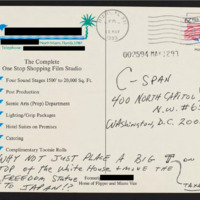 North Miami, FL
Telephone:
The Complete
One Stop Shopping Film Studio
Four Sound Stages 1500' to 20,000 Sq. Ft.
Post Production
Scenic Arts (Prop) Department
Lighting/Grip Packages
Hotel Suites on Premises
Catering
Complimentary Tootsie Rolls
From
Home of Flipper and Miami Vice
002594 MAY 1297
C-SPAN
400 NORTH CAPITOL
N.W. #6
WASHINGTON, D.C. 200
WHY NOT JUST PLACE A BIG T ON
TOP OF THE WHITE HOUSE & MOVE THE
FREEDOM STATUE
TO JAPAN!?